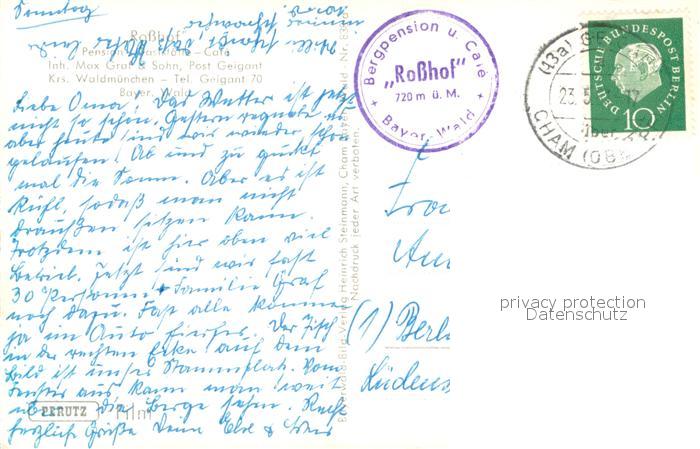 Sonntag
Roßhof
Pension - Gaststätte - Café
Inh. Max Graf & Sohn, Post Geigant
Krs. Waldmünchen - Tel. Geigant 70
Bayer. Wald
Liebe Oma! Das Wetter ist jetzt
nicht so schön. Gestern regnete es
aber heute sind wir wieder schön
gelaufen. Ab und zu guckt
mal die Sonne. Aber es ist
kühl, sodaß man nicht
draußen sitzen kann.
Trotzdem ist hier oben viel
Betrieb. Jetzt sind wir fast
30 Personen + Familie Graf
noch dazu. Fast alle kommen
ja im Auto hierher. Der Tisch
in der rechten Ecke auf dem
Bild ist unser Stammplatz. Vom
Fenster aus kann man weit
die Berge sehen. Recht
herzliche Grüße Deine
PERUTZ Film
Verlag Heinrich Steinmann, Cham
Nachdruck jeder Art verboten.
Bergpension u. Café
"Roßhof"
720 m ü. M.
Bayer. Wald
(13a)
23.5
CHAM (OB
DEUTSCHE BUNDESPOST BERLIN
10
(1) Berl
privacy protection
Datenschutz